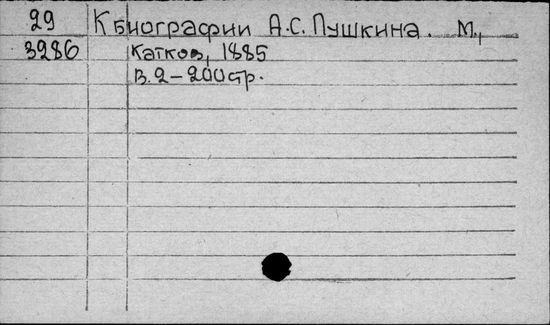 29 К биографии А.С. Пушкина. М.,
3286 Катков, 1885
В. 2 – 200 стр.